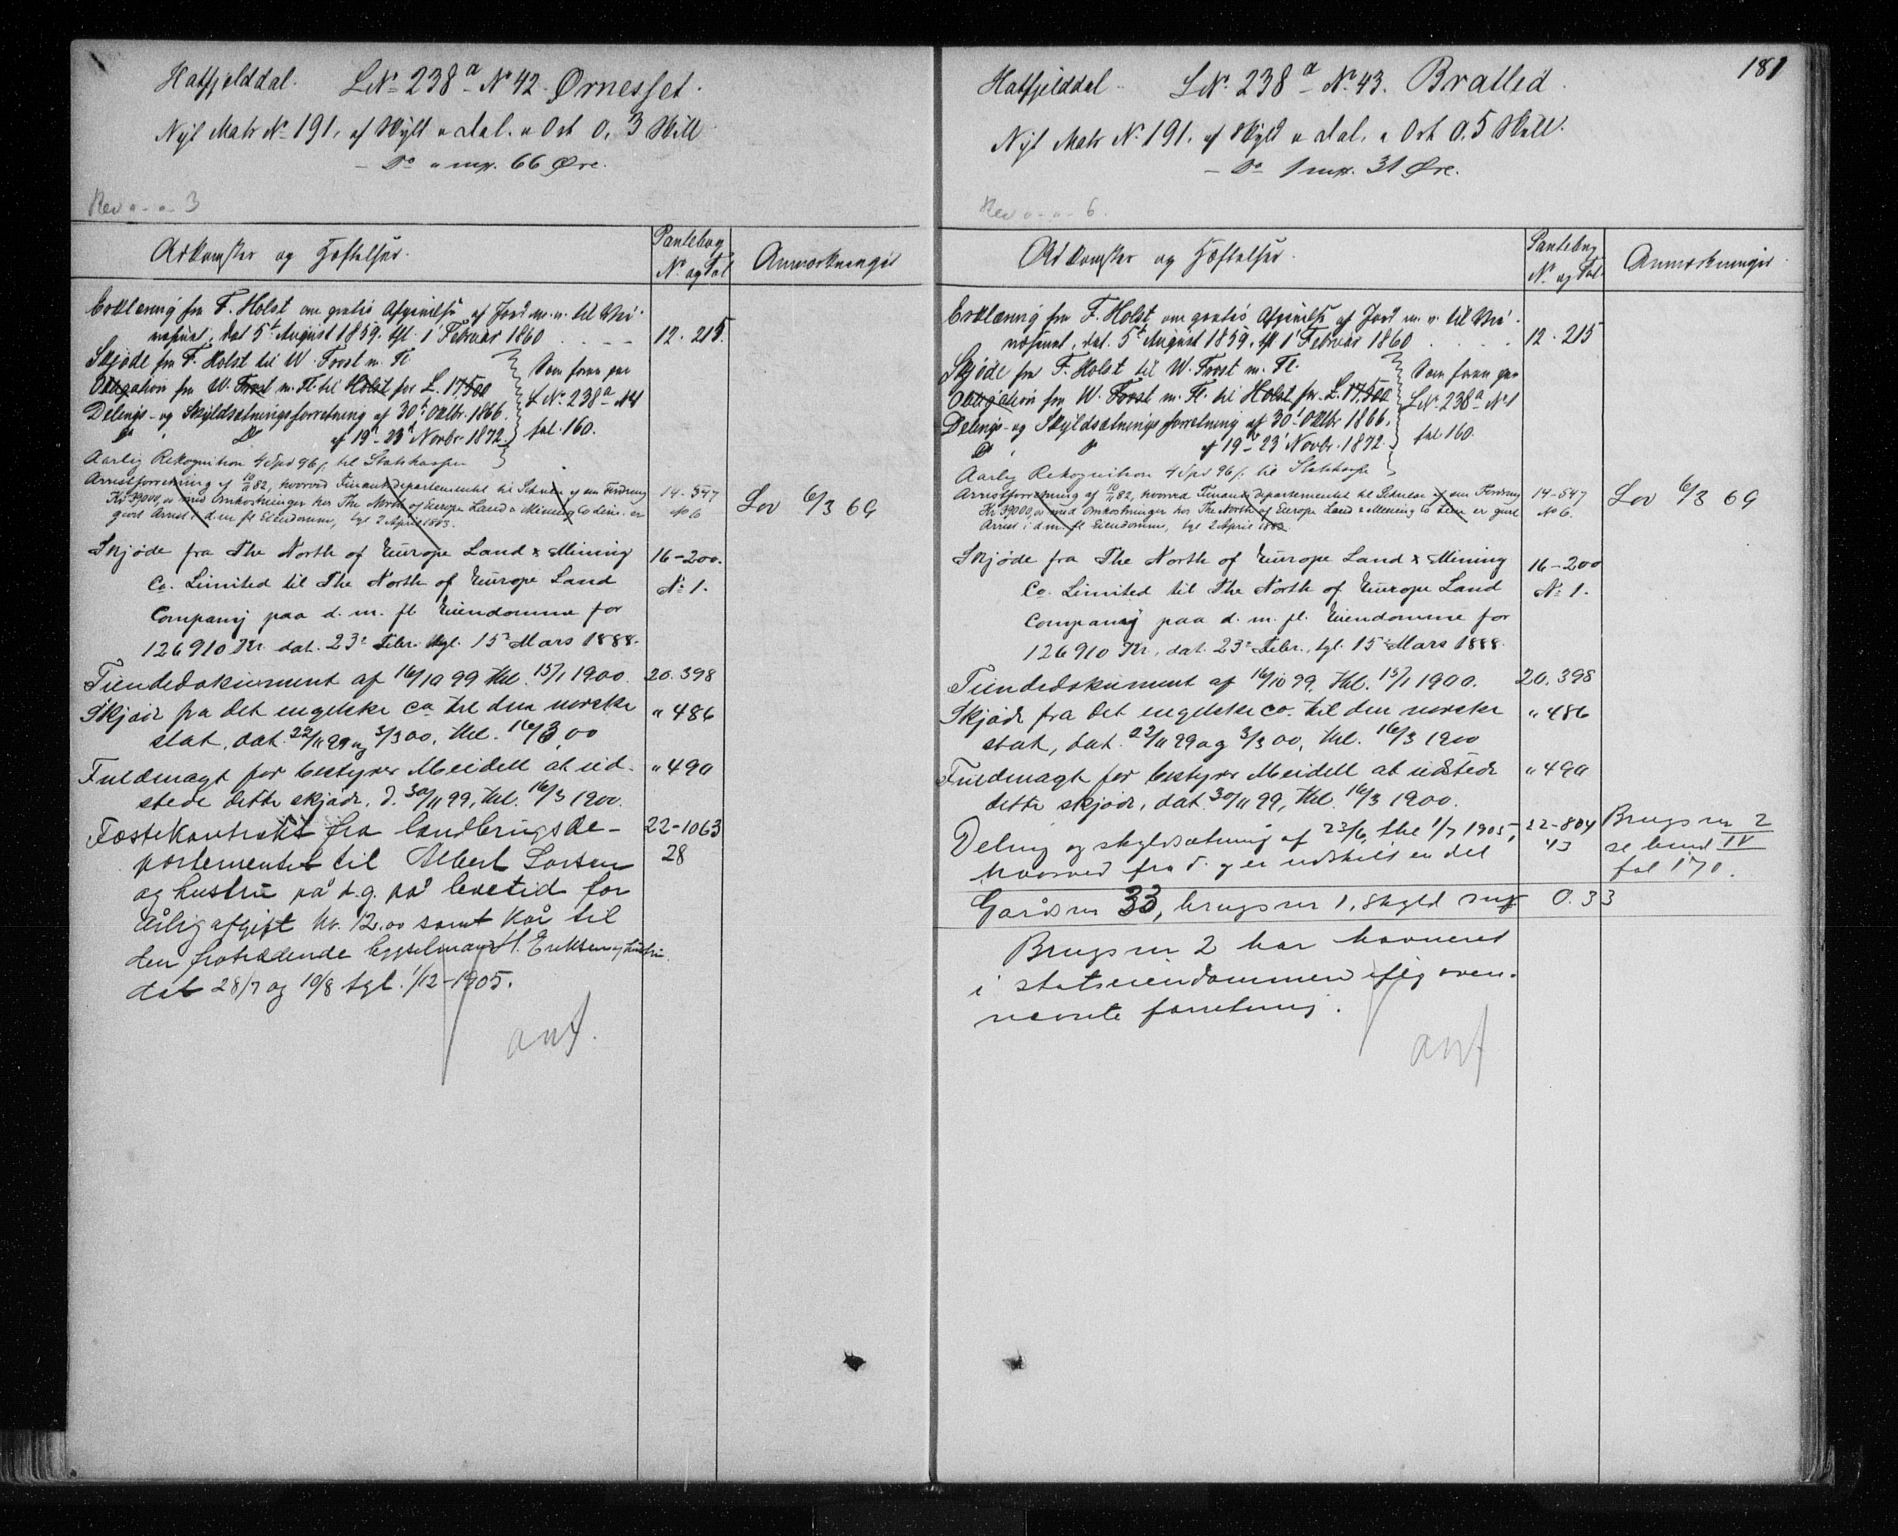 Hatfjelddal. LNr 238a Nr 42 Ørnesset.
Nyt Matr Nr 191, af Skyld " Dal. " Ort 0, 3 Skill
– Do " mk. 66 Øre.
Rev " - " - 3
Adkomster og Hæftelser.
Pantebog
Nr og Fol
Anmærkninger
Erklæring fra F. Holst om gratis Afgivelse af Jord m. v. til
dat 5t August 1859. thl. 1' Februar 1860
12. 215.
Skjøde fra F. Holst til W. Frost m. Fl.
Obligation fra W. Frost m. Fl. til Holst for £. 17,500
Delings- og Skyldsætningsforretning af 30t Oktbr. 1866.
Do " Do af 19d - 23d Novbr. 1872.
Som foran paa
LNr. 238a N1
fol. 160.
Aarlig Rekognition 4 Spd 96 s. til Statskassen
Arrestforretning af 10/11 82, hvorved Finantsdepartementet til Sikkelse af en Fordring
Kr. 39000,00 med Omkostninger hos The North of Europe Land & Mining Co Lim. er
gjort Arrest i d. m. fl. Eiendomme, tgl 2 April 1883.
14-547
No 6
Lov 6/3 69
Skjøde fra The North of Europe Land & Mining
Co. Limited til The North of Europe Land
Company paa d. m. fl. Eiendomme for
126910 Kr. dat. 23de Febr. tgl. 15de Mars 1888.
16-200.
Nr 1.
Tiendedokument af 16/10 99 thl. 15/1 1900.
20. 398
Skjøde fra det engelske co. til den norske
stat, dat. 22/11 99 og 3/3 00, thl. 16/3 00
" 486
Fuldmagt for bestyrer Meidell at ud-
stede dette skjøde, d. 30/11 99, thl. 16/3 1900.
" 490
Fæstekontrakt fra landbrugsde-
partementet til Albert Larsen
og hustru på d.g. på levetid for
årlig afgift kr. 12.00 samt kår til
den fratrædende bygselmand H. Eriksen og hustru.
dat 28/7 og 19/8 tgl. 1/12-1905.
22-1063
28
anf.
181
Hatfjelddal. LNr. 238a Nr. 43. Bratlid.
Nyt Matr Nr. 191. af Skyld " Dal. " Ort 0. 5 Skill.
– Do 1 mk. 31 Øre.
Rev " - " - 6.
Adkomster og Hæftelser.
Pantebog
Nr. og Fol
Anmærkninger
Erklæring fra F. Holst om gratis Afgivelse af Jord m. v. til
dat. 5t August 1859. thl 1' Februar 1860
12. 215
Skjøde fra F. Holst til W. Frost m. Fl.
Obligation fra W. Frost m. Fl. til Holst for £. 17,500
Delings- og Skyldsætningsforretning af 30' Oktbr 1866.
Do " Do af 19d - 23' Novbr. 1872.
Som foran paa
LNr. 238a Nr 1
fol 160.
Aarlig Rekognition 4 Spd 96 s. til Statskassen
Arrestforretning af 10/11 82, hvorved Finantsdepartementet til Sikkelse af en Fordring
Kr 39000,00 med Omkostninger hos The North of Europe Land & Mining Co Lim er gjort
Arrest i d. m. fl. Eiendomme, tgl 2 April 1883.
14-547
No 6
Lov 6/3 69
Skjøde fra The North of Europe Land & Mining
Co. Limited til The North of Europe Land
Company paa d. m. fl. Eiendomme for
126910 Kr., dat. 23de Febr., tgl. 15de Mars 1888.
16-200
Nr 1.
Tiendedokument af 16/10 99, thl. 15/1 1900.
20. 398
Skjøde fra det engelske co. til den norske
stat, dat. 22/11 99 og 3/3 00, thl. 16/3 1900
" 486
Fuldmagt for bestyrer Meidell at udstede
dette skjøde, dat. 30/11 99, thl. 16/3 1900.
" 490
Deling og skyldsætning af 23/6, thl 1/7 1905,
hvorved fra d. g er udskilt en del
22-804
43
Brugs nr 2
se bind IV
fol 170.
Gårds nr 33, brugs nr 1, skyld mk 0.33
Brugs nr 2 har havneret
i statseiendommen ifølg oven-
nævnte forretning.
anf